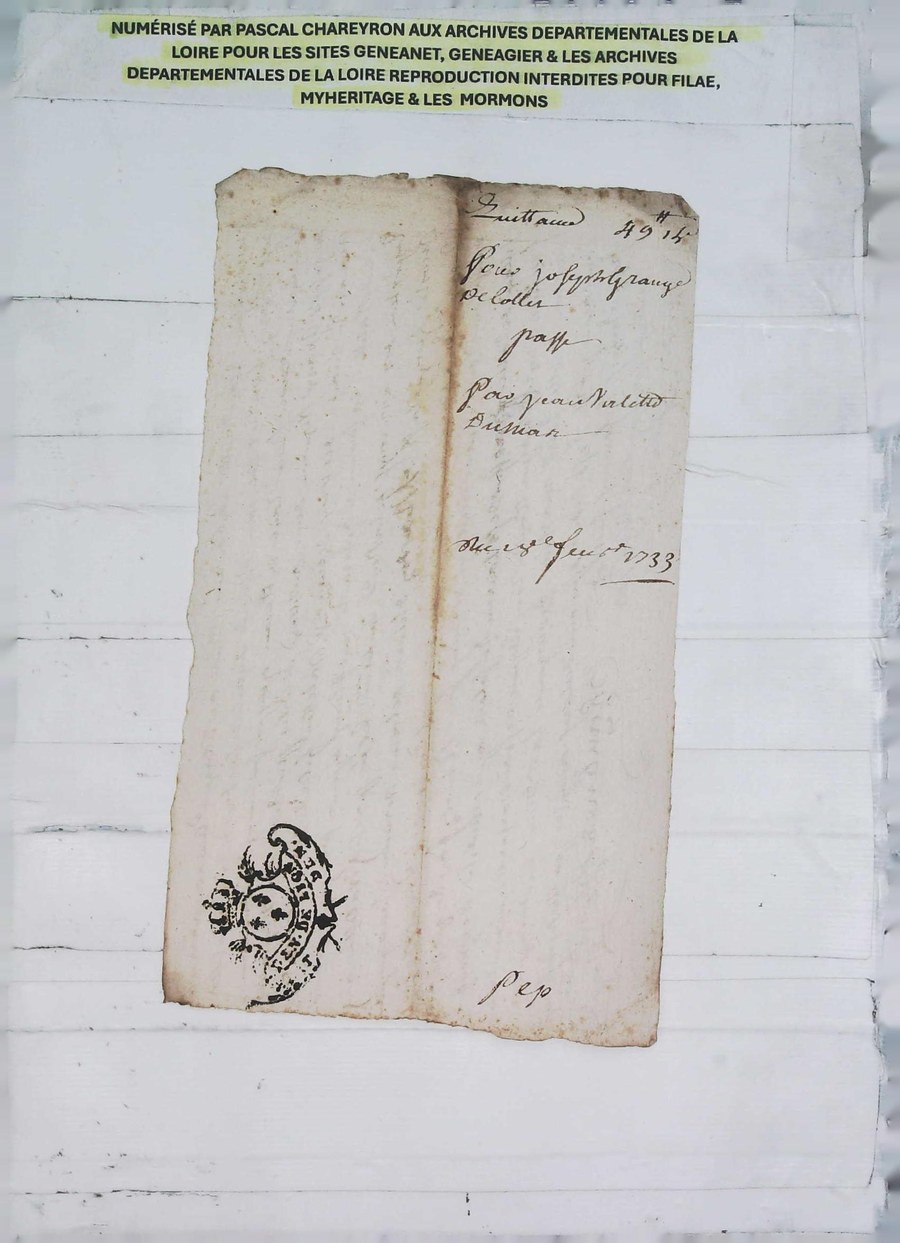 NUMÉRISÉ PAR PASCAL CHAREYRON AUX ARCHIVES DEPARTEMENTALES DE LA
LOIRE POUR LES SITES GENEANET, GENEAGIER & LES ARCHIVES
DEPARTEMENTALES DE LA LOIRE REPRODUCTION INTERDITES POUR FILAE,
MYHERITAGE & LES MORMONS
Quittance 49 tt
Pour joseph Grange
passé
Par jean
Du 18e feur 1733
GEN. DE LION
Pep